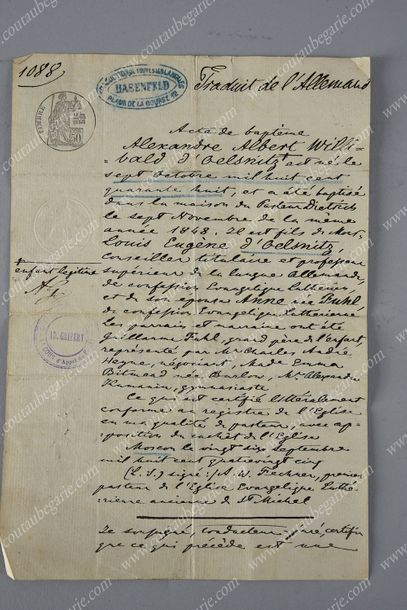 1088
Traduit de l'Allemand
HASENFELD
PLACE DE LA BOURSE 12
TIMBRE
50
Acte de baptême
Alexandre Albert Willi-
bald d'Oelsnitz est né le
sept Octobre mil huit cent
quarante huit, et a été baptisé
dans la maison du Pasteur
le sept Novembre de la même
année 1848. Il est fils de Mr
Louis Eugène d'Oelsnitz,
Conseiller titulaire et professeur
supérieur de la langue Allemande,
enfant légitime
de confession Evangélique Luthérienne
et de son épouse Anne née Fuhl,
de confession Evangélique Luthérienne
les parrains et marraine ont été
Guillaume Fuhl, grand père de l'enfant,
représenté par Mr Charles André
négociant, Made Emma
née Mr Alexandre
gymnasiaste
Ce qui est certifié littéralement
conforme au registre de l'Eglise
en ma qualité de pasteur, avec ap-
position du cachet de l'Eglise
Moscou le vingt Septembre
mil huit cent quatrevingt cinq
(L. S.) signé: A. W. Fechner, premier
pasteur de l'Eglise Evangélique Luthé-
rienne ancienne de St Michel
Je soussigné, traducteur juré certifie
que ce qui précède est une
www.coutaubegarie.com